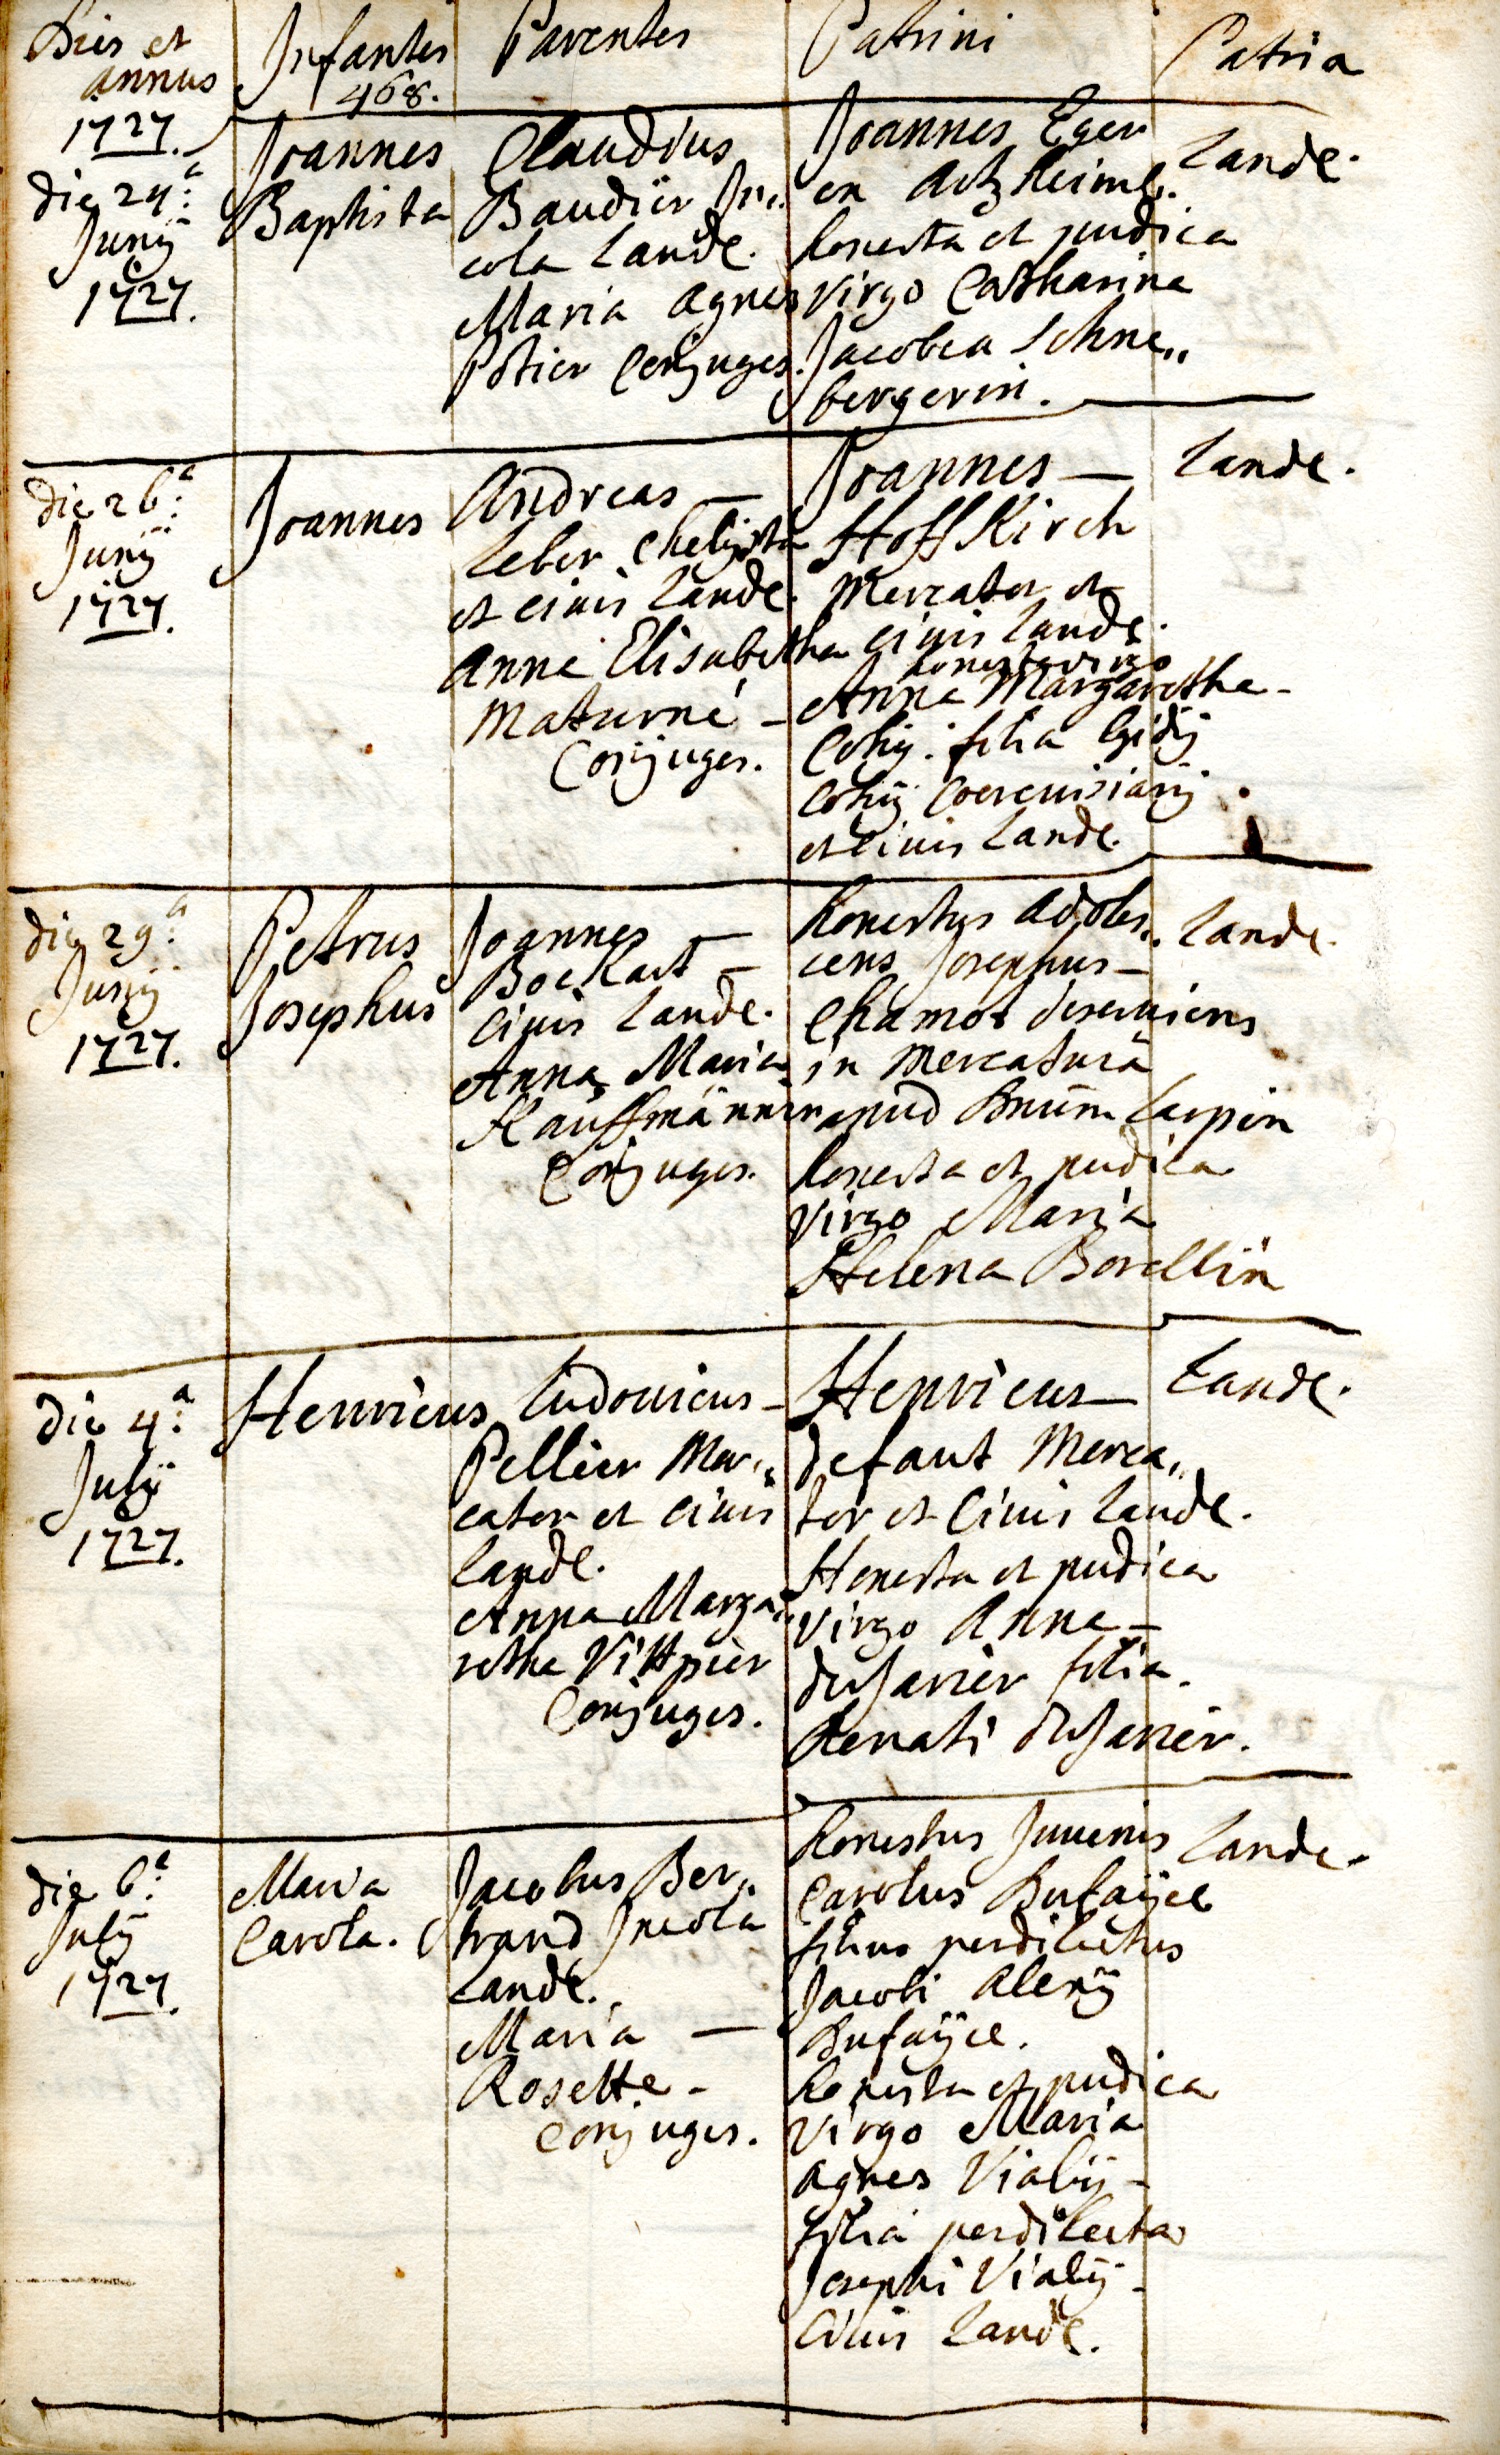 Dies et
annus
1727.
Infantes
468.
Parentes
Patrini
Patria
die 24.a
Junÿ
1727.
Joannes
Baptista
Claudius
Baudier Jn„
cola Lande.
Maria Agnes
Potier Conjuges.
Joannes Eger
en Artzheimb.
honesta et pudica
virgo Catharina
Jacobea Schne„
bergerin.
Lande.
die 26.a
Junÿ
1727.
Joannes
Andreas —
Leber Chelijsta
et civis Lande.
Anna Elisabetha
Maturné —
Conjuges.
Joannes —
Hoffkirch
Mercator et
civis Lande.
honesta virgo
Anna Margaretha —
Cohij. filia Egidij
Cohij Coerevisiarij
et civis Lande.
Lande.
die 29.a
Junÿ
1727.
Petrus
Josephus
Joannes —
Boekart —
civis Lande.
Anna Maria
Kauffmännin
Conjuges.
honestus adoles„
cens Josephus —
Chamot deserviens
in Mercatura
apud Dnum Laspin
honesta et pudica
virgo Maria
Helena Borellin
Lande.
die 4.a
Julÿ
1727.
Henricus
Ludovicus —
Pellier Mer„
cator et civis
Lande.
Anna Marga„
retha Vittpier
Conjuges.
Henricus —
defaut Merca„
tor et Civis Lande.
Honesta et pudica
virgo Anna —
dusarier filia.
Renati dusarier.
Lande.
die 6.a
Julÿ
1727.
Maria
Carola.
Jacobus Ber„
trand Jncola
Lande.
Maria —
Rosette —
Conjuges.
honestus Juvenis
Carolus Bufaÿce
filius perdilectus
Jacobi Alexij
Bufaÿce.
honesta et pudica
virgo Maria
Agnes Vialij —
filia perdilecta
Josephi Vialij —
Civis Lande.
Lande.